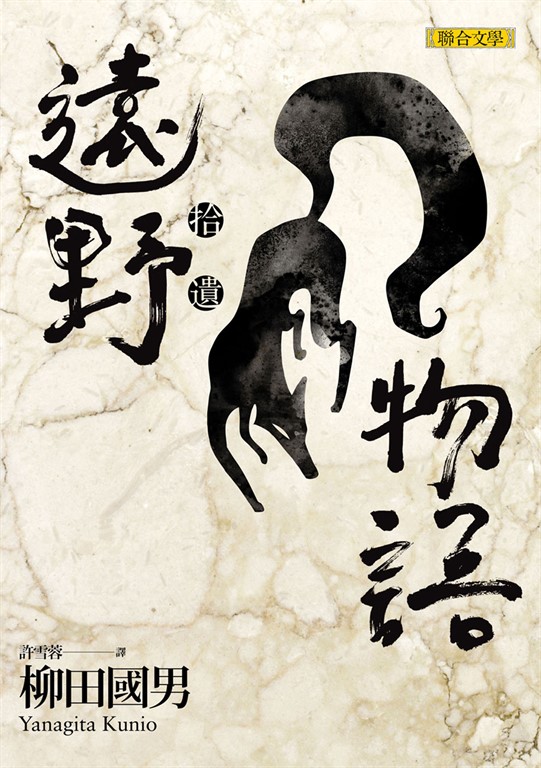 聯合文學
遠野
拾遺
物語
許雪蓉——譯
柳田國男
Yanagita Kunio